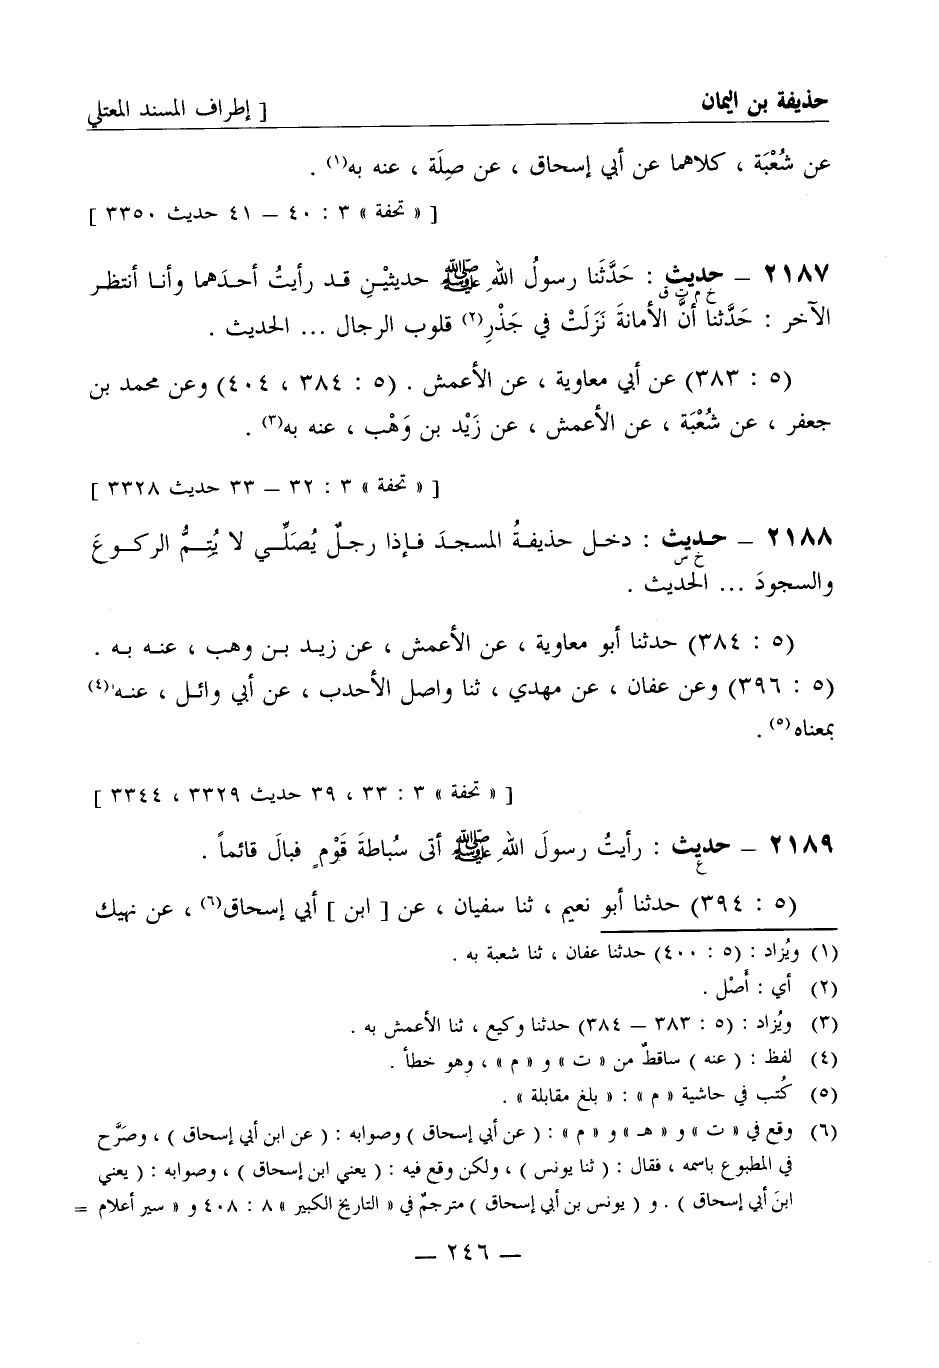 حذيفة بن اليمان
[ إطراف المسند المعتلي
عن شُعْبَة ، كلاهما عن أبي إسحاق ، عن صِلَة ، عنه به(١) .
[ « تحفة » ٣ : ٤٠ – ٤١ حديث ٣٣٥٠ ]
٢١٨٧ – حديث : حَدَّثَنا رسولُ اللهِ ﷺ حديثيْنِ قد رأيتُ أحدَهما وأنا أنتظر
خ م ت ق
الآخر : حَدَّثنا أنَّ الأمانةَ نَزَلَتْ في جَذْرِ(٢) قلوب الرجال ... الحديث .
(٥ : ٣٨٣) عن أبي معاوية ، عن الأعمش . (٥ : ٣٨٤ ، ٤٠٤) وعن محمد بن
جعفر ، عن شُعْبَة ، عن الأعمش ، عن زَيْد بن وَهْب ، عنه به(٣) .
[ « تحفة » ٣ : ٣٢ – ٣٣ حديث ٣٣٢٨ ]
٢١٨٨ – حديث : دخل حذيفةُ المسجدَ فإذا رجلٌ يُصَلِّي لا يُتِمُّ الركوعَ
خ س
والسجودَ ... الحديث .
(٥ : ٣٨٤) حدثنا أبو معاوية ، عن الأعمش ، عن زيد بن وهب ، عنه به .
(٥ : ٣٩٦) وعن عفان ، عن مهدي ، ثنا واصل الأحدب ، عن أبي وائل ، عنه(٤)
بمعناه(٥) .
[ « تحفة » ٣ : ٣٣ ، ٣٩ حديث ٣٣٢٩ ، ٣٣٤٤ ]
٢١٨٩ – حديث : رأيتُ رسولَ اللهِ ﷺ أتى سُباطةَ قَوْمٍ فبالَ قائماً .
ع
(٥ : ٣٩٤) حدثنا أبو نعيم ، ثنا سفيان ، عن [ ابن ] أبي إسحاق(٦) ، عن نهيك
(١) ويُزاد : (٥ : ٤٠٠) حدثنا عفان ، ثنا شعبة به .
(٢) أي : أَصْل .
(٣) ويُزاد : (٥ : ٣٨٣ – ٣٨٤) حدثنا وكيع ، ثنا الأعمش به .
(٤) لفظ : ( عنه ) ساقطٌ من « ت » و « م » ، وهو خطأ .
(٥) كُتب في حاشية « م » : « بلغ مقابلة » .
(٦) وقع في « ت » و « هـ » و « م » : ( عن أبي إسحاق ) وصوابه : ( عن ابن أبي إسحاق ) ، وصرَّح
في المطبوع باسمه ، فقال : ( ثنا يونس ) ، ولكن وقع فيه : ( يعني ابن إسحاق ) ، وصوابه : ( يعني
ابنَ أبي إسحاق ) . و ( يونس بن أبي إسحاق ) مترجمٌ في « التاريخ الكبير » ٨ : ٤٠٨ و « سير أعلام =
— ٢٤٦ —